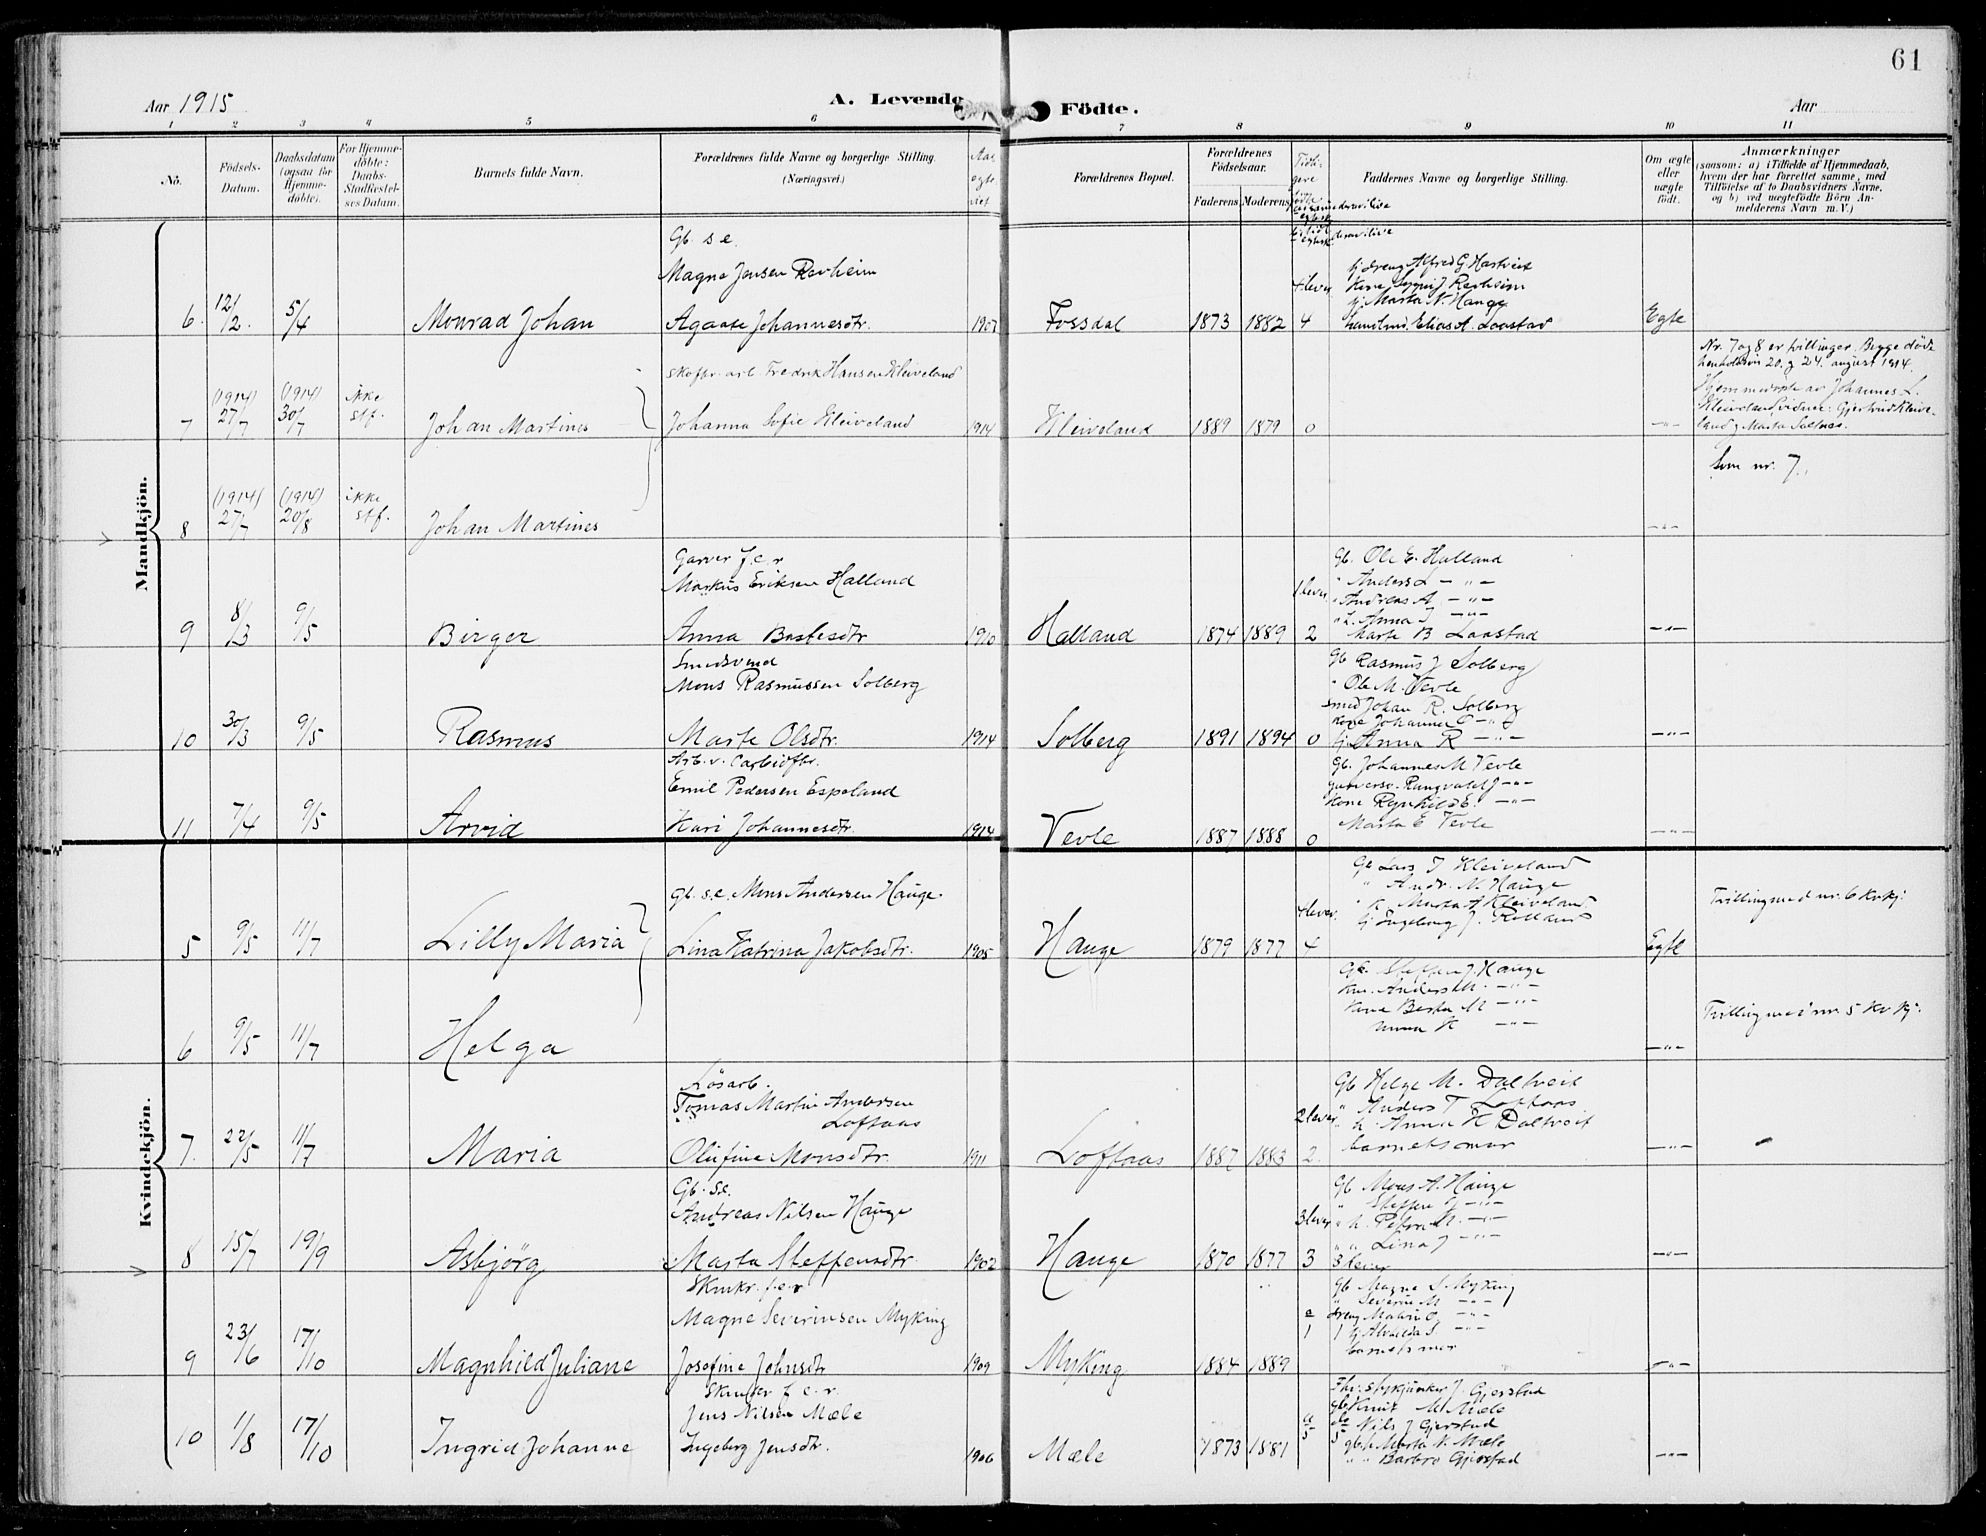 61
Aar 1915
A. Levende Födte.
Aar
1 2 3 4 5 6 7 8 9 10 11
No.
Födsels-Datum.
Daabsdatum (ogsaa for Hjemme-döbte).
For Hjemme-döbte: Daabs-Stadfæstel-ses Datum.
Barnets fulde Navn.
Forældrenes fulde Navne og borgerlige Stilling.
(Næringsvei.)
Forældrenes Bopæl.
Forældrenes Födselsaar.
Faderens Moderens
Faddernes Navne og borgerlige Stilling.
Om ægte eller uægte födt.
Anmærkninger
(saasom: a) i Tilfælde af Hjemmedaab, hvem der har forrettet samme, med Tilföielse af to Daabsvidners Navne, og b) ved uægtefödte Börn Anmelderens Navn m. V.)
Mandkjön.
Gb. s.e.
Magne Jensen Revheim
6. 12/2. 5/4 Monrad Johan Agaate Johannesdtr. 1907 Fossdal 1873 1882 4 Egte
4 lever
dreng Alfred G. Hartveit
Marta N. Hauge
Elias A. Laastad
skofbr. arb. Fredrik Hansen Kleiveland
7 (1914) 27/7 (1914) 30/7 ikke stf. Johan Martines Johanna Sofie Kleiveland 1914 Kleiveland 1889 1879 0 -"-
Nr. 7 og 8 er tvillinger. Begge döde
henholdsvis 20. og 24. august 1914.
Hjemmedöbte av Johannes L.
Kleiveland. vidner: Gjertrud Kleive-
land og Marta
8 (1914) 27/7 (1914) 20/8 ikke stf. Johan Martines -"-
Som nr. 7.
Garver f.e.r
Markus Eriksen Halland
9 8/3 9/5 Birger Anna Bastesdtr 1910 Halland 1874 1889 2 -"-
1 lever
Gb. Ole E. Halland
" Anders L -"-
" Andreas A -"-
Anna J -"-
Marta B Laastad
Smedsvend
Mons Rasmussen Solberg
10 30/3 9/5 Rasmus Marta Olsdtr. 1914 Solberg 1891 1894 0 -"-
Gb Rasmus J Solberg
" Ole M. Tevle
smed Johan R. Solberg
kone Johanna -"-
pj Anna R -"-
Arb. v. Carbidfbr.
Emil Pedersen Espeland
11 7/4 9/5 Arvid Kari Johannesdtr. 1914 Tevle 1887 1888 0 -"-
Gb. Johannes M Tevle
Kone Ragnhild E. -"-
Marta E Tevle
Kvindekjön.
Gb. s.e. Mons Andersen Hauge
5 9/5 11/7 Lilly Maria Lina Katrina Jakobsdtr. 1905 Hauge 1879 1877 4 Egte
4 lever.
Gb Lars J Kleiveland
" Andr. N. Hauge
" k Marta A Kleiveland
pj Ingeborg J.
Tvilling med nr. 6 kv.kj.
6 9/5 11/7 Helga -"-
Gb. Steffen J. Hauge
Anders M. -"-
Kone Berta M -"-
Anna K -"-
Tvilling med nr. 5 kv.kj.
Lösarb.
Tomas Martin Andersen
Loftaas
7. 22/5 11/7 Maria Olufine Monsdtr. 1911 Loftaas 1887 1883 2. -"-
2 lever
Gb Helge M. Daltveit
" Anders T Loftaas
" k. Anna H Daltveit
barnets mor
Gb. s.e.
Andreas Nilsen Hauge
8 15/7 19/9 Asbjörg Marta Steffensdtr. 1902 Hauge 1870 1877 3 -"-
3 lever
Gb Mons A. Hauge
" Steffen J -"-
" k. Petra M. -"-
" " Lina J -"-
3 lever
Skinkr. f.e.r
Magne Severinsen Myking
9 23/6 17/10 Magnhild Juliane Josefine Johnsdtr 1909 Myking 1884 1889 -"-
Gb. Magne S. Myking
" Severin M -"-
dreng
barnets mor
Skinkr f.e.r.
Jens Nilsen Mæle
10 1/8 17/10 Ingrid Johanne Ingeborg Jensdtr. 1906 Mæle 1873 1881 -"-
J. Gjerstad
gb Knut M Mæle
Nils J Gjerstad
gb.k. Marta N. Mæle
" " Barbro Gjerstad